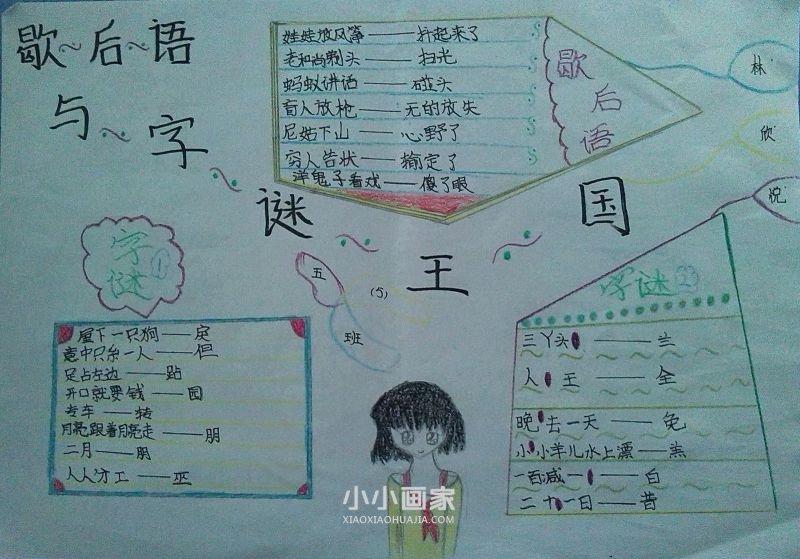 歇~后~语
与~字
谜~王~国
娃娃放风筝——抖起来了
老和尚剃头——扫光
蚂蚁讲话——碰头
盲人放枪——无的放失
尼姑下山——心野了
穷人告状——输定了
洋鬼子看戏——傻了眼
歇后语
林
欣
悦
五
(5)
班
字谜①
屋下一只狗——突
竟中只余一人——但
足占左边——跕
开口就要钱——园
专车——转
月亮跟着月亮走——朋
二月——朋
人人分工——巫
字谜②
三丫头——兰
人王——全
晚去一天——免
小小羊儿水上漂——羔
一百减一——白
二十一日——昔
小小画家
XIAOXIAOHUAJIA.COM